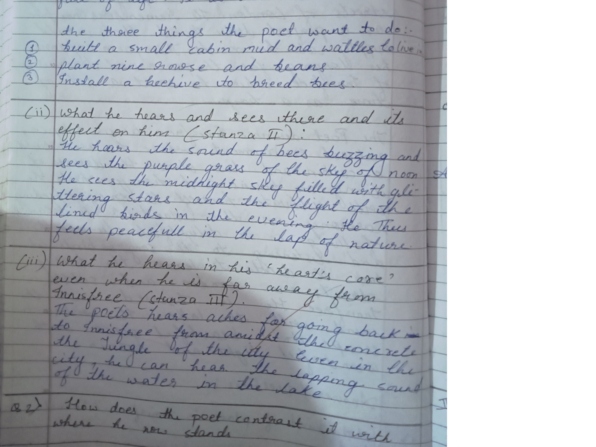 the three things the poet want to do:-
① built a small cabin mud and wattles to live.
② plant nine rowse and beans
③ Install a beehive to breed bees.
(ii) What he hears and sees there and its
effect on him (stanza II):
He hears the sound of bees buzzing and
sees the purple grass of the sky of noon
He sees the midnight sky filled with gli
ttering stars and the flight of the
lined birds in the evening. He Thus
feels peacefull in the lap of nature
(iii) What he hears in his 'heart's core'
even when he is far away from
Innisfree (stanza III).
The poets hears aches for going back
to innisfree from amidst the concrete
the Jungle of the city Even in the
city, he can hear the lapping sound
of the water in the lake
Q2) How does the poet contrast it with
where he now stands